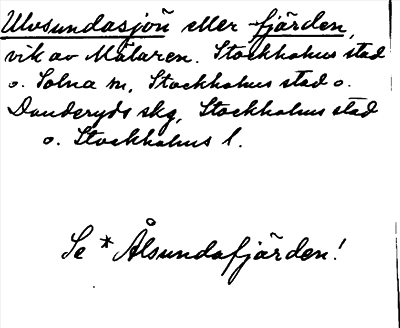 Ulvsundasjön eller -fjärden,
vik av Mälaren. Stockholms stad
o. Solna sn, Stockholms stad o.
Danderyds skg, Stockholms stad
o. Stockholms l.
Se *Ålsundafjärden!